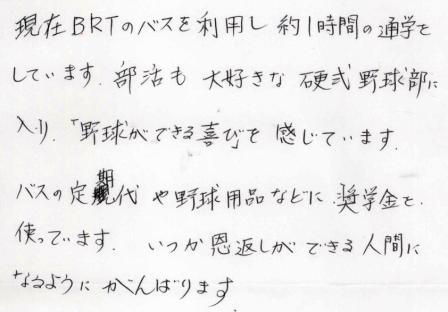 現在BRTのバスを利用し約1時間の通学を
しています. 部活も 大好きな 硬式野球部に
入り. 「野球ができる喜びを 感じています.
バスの定期代や野球用品などに.奨学金を.
使っています. いつか恩返しができる人間に
なるように がんばります